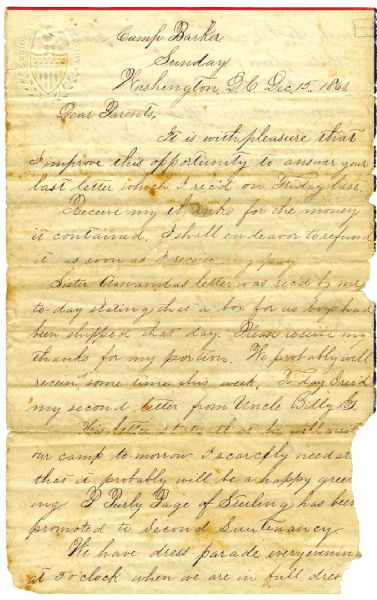 Camp Barker
Sunday
Washington, D.C. Dec, 15, 1861
Dear Parents,
It is with pleasure that
I improve this opportunity to answer your
last letter which I rec'd on Friday last.
Receive my thanks for the money
it contained. I shall endeavor to refund
it as soon as I receive my pay
Sister Amandas letter was rec'd by me
to-day stating that a box for us boys had
been shipped that day. Please receive my
thanks for my portion. We probably will
receive some time this week. To day I rec'd
my second letter from Uncle Billy G.
His letter that he will
our camp to morrow I scarcfly need
that it probably will be a happy gree
ing. P Purly Page of Sterling has been
promoted to Second Lieutinancy
We have dress parade every evening
at o'clock when we are in full dres